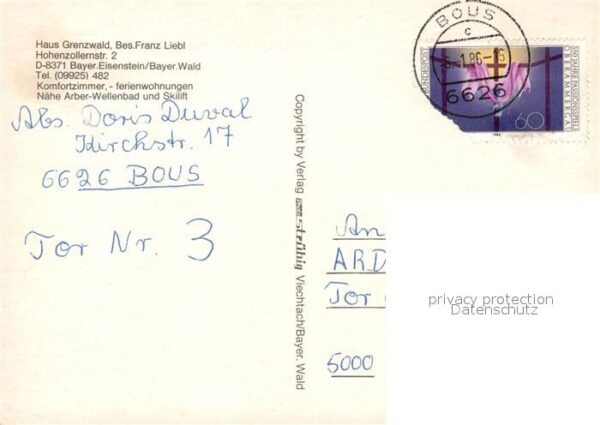 Haus Grenzwald, Bes.Franz Liebl
Hohenzollernstr. 2
D-8371 Bayer.Eisenstein/Bayer.Wald
Tel. (09925) 482
Komfortzimmer, - ferienwohnungen
Nähe Arber-Wellenbad und Skilift
Abs. Doris Duval
Kirchstr. 17
6626 BOUS
Tor Nr. 3
Copyright by Verlag Ströhig Viechtach/Bayer. Wald
BOUS
c
1.86
6626
BUNDESPOST
60
350 JAHRE PASSIONSSPIELE
OBERAMMERGAU
An
ARD
Tor
5000
privacy protection
Datenschutz